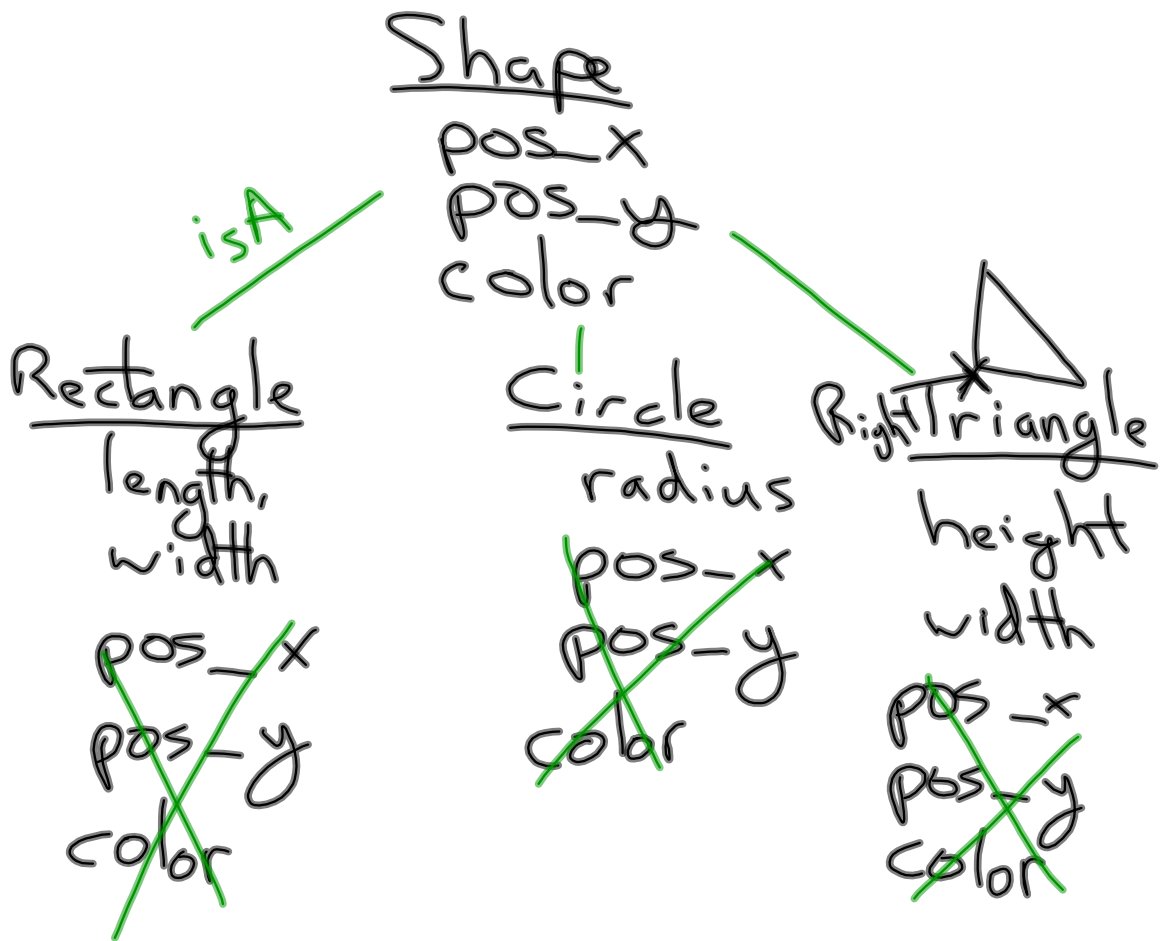 Shape
pos_x
pos_y
color
isA
Rectangle
length,
width
pos_x
pos_y
color
Circle
radius
pos_x
pos_y
color
RightTriangle
height
width
pos_x
pos_y
color